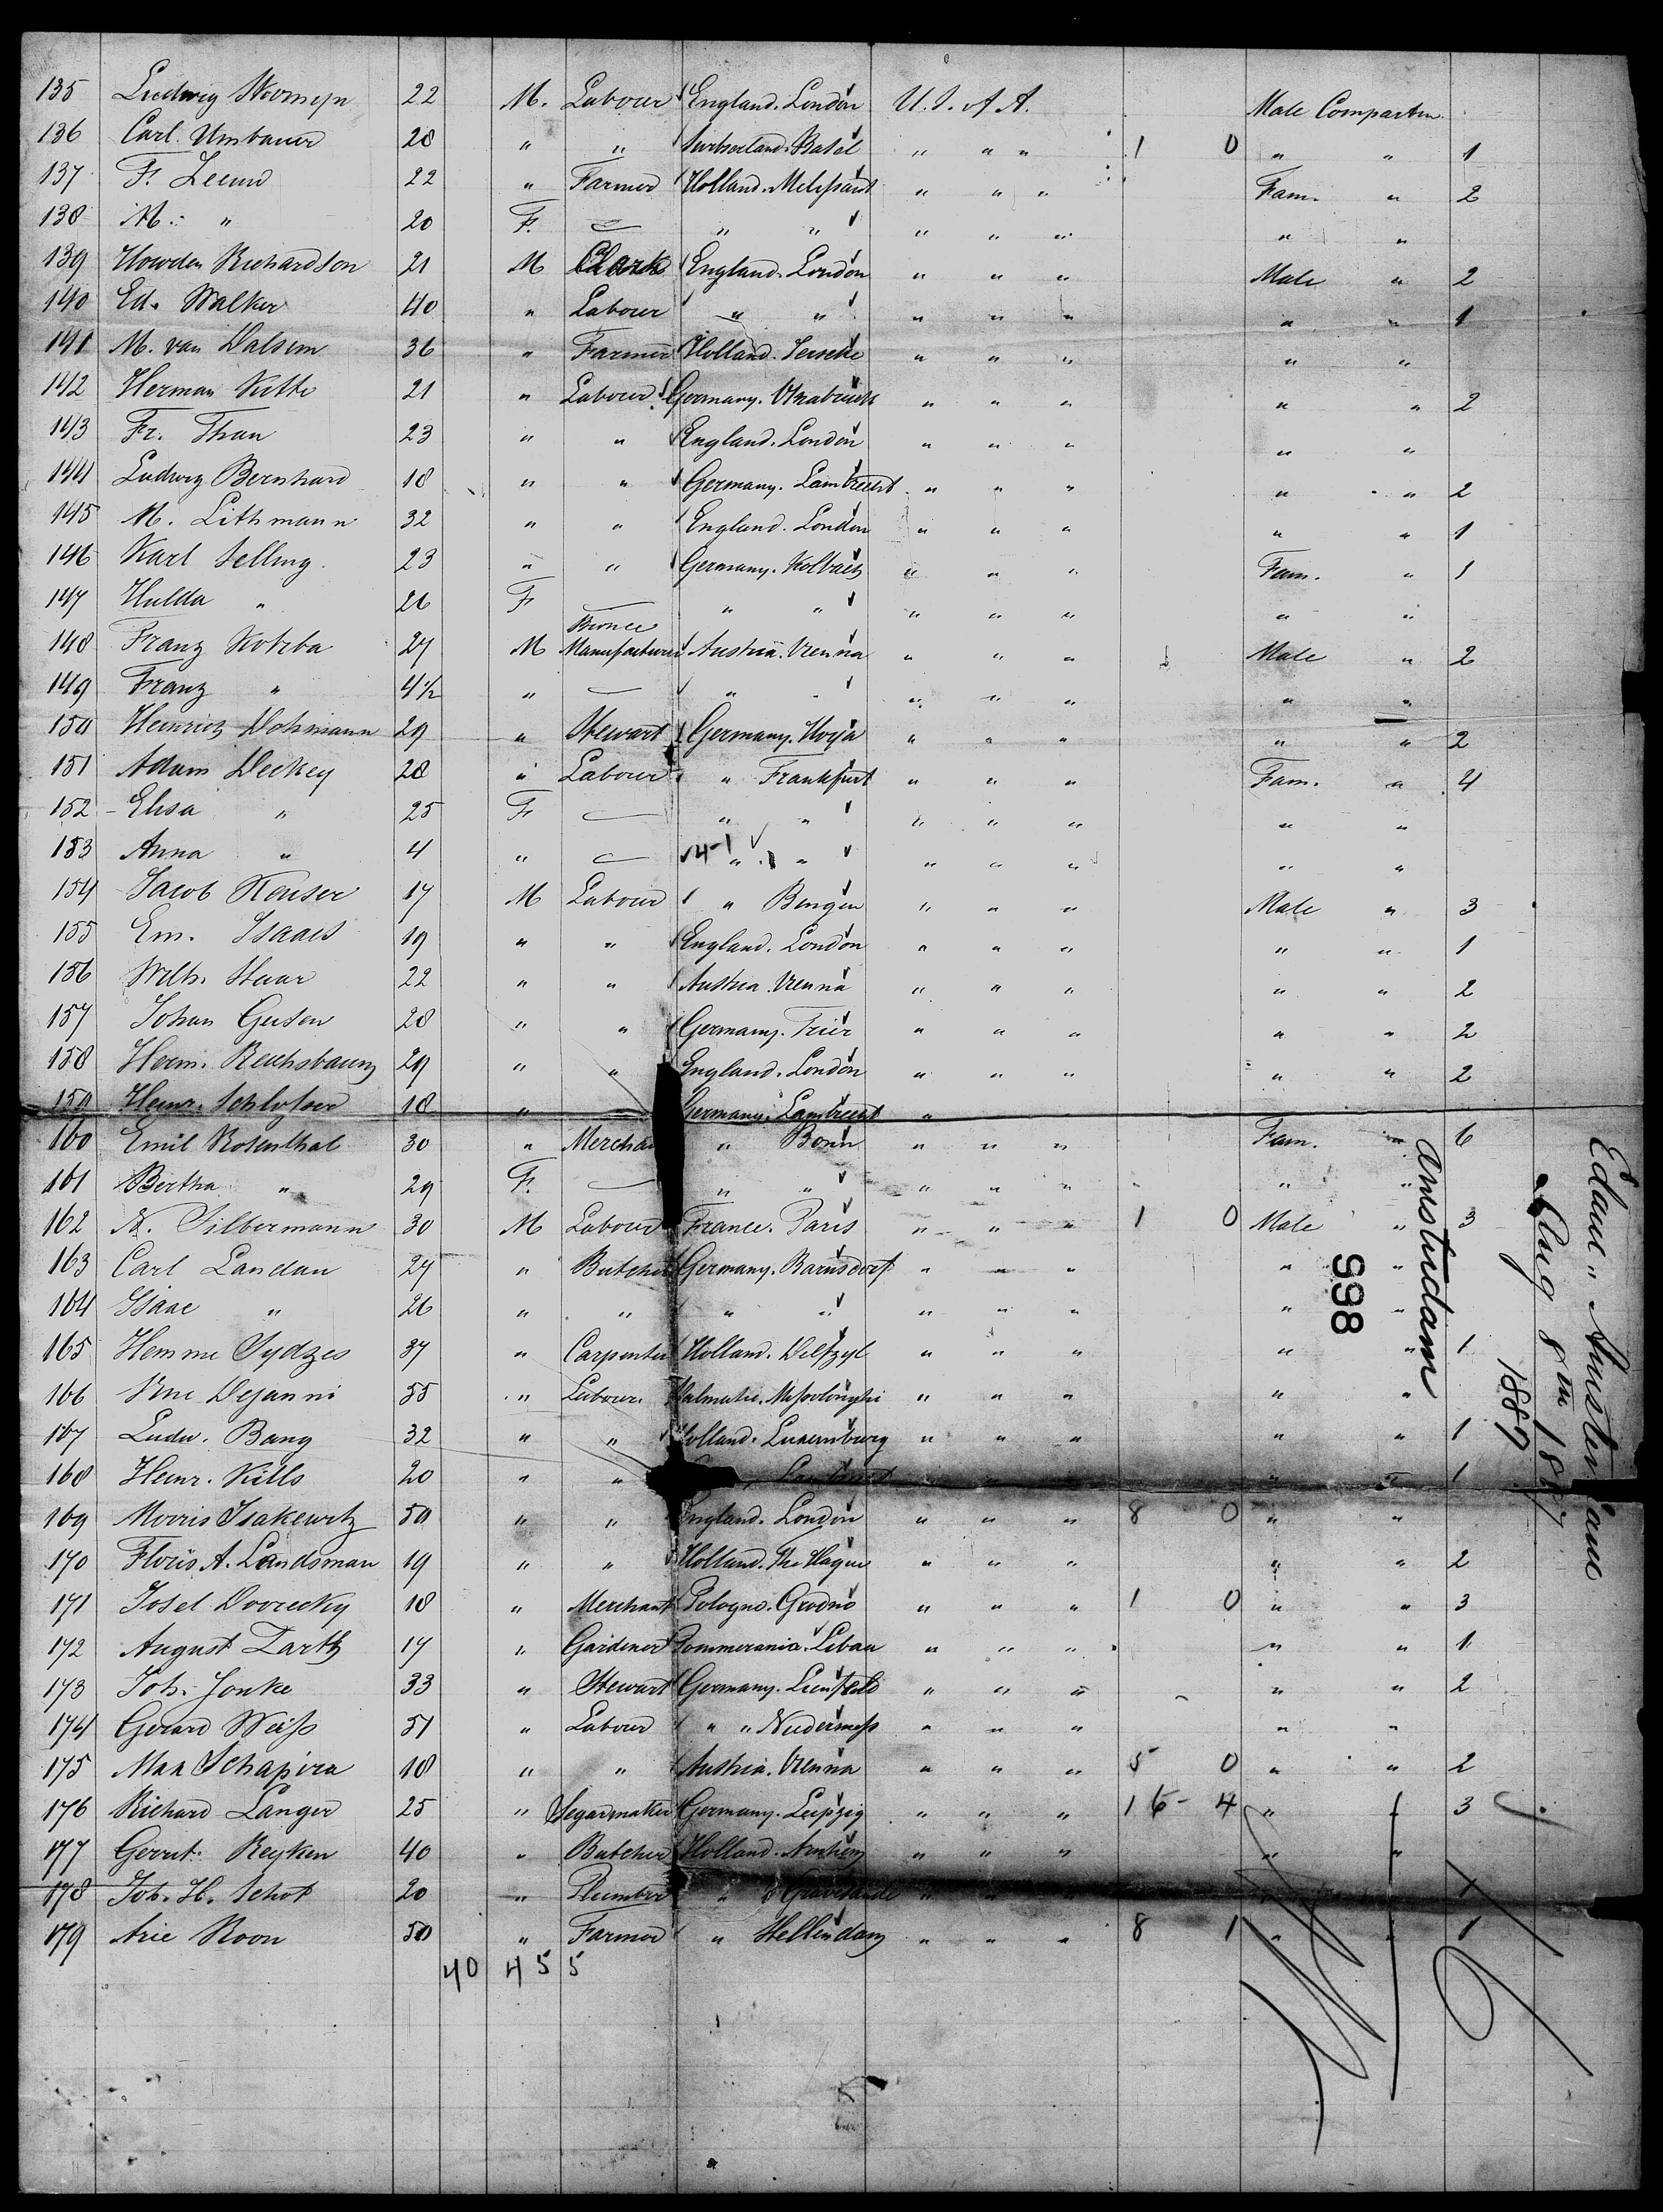 135 Ludwig 22 M. Labour England. London U. S. of A. Male Compartm.
136 Carl Umbauer 28 " " Switserland. Basel " " " 1 0 " " 1
137 F. Leeuw 22 " Farmer Holland. Melissant " " " Fam. " 2
138 M. " 20 F. — " " " " " " "
139 Howden Richardson 21 M Clark England. London " " " Male " 2
140 Ed. Walker 40 " Labour " " " " " " " 1
141 M. van Dalsem 36 " Farmer Holland. Ierseke " " " " "
142 Herman 21 " Labour Germany. Osnabruck " " " " " 2
143 Fr. Thau 23 " " England. London " " " " "
144 Ludwig Bernhard 18 " " Germany. Lambrecht " " " " " 2
145 M. Lithmann 32 " " England. London " " " " " 1
146 Karl Selling 23 " " Germany. Kolbatz " " " Fam. " 1
147 Hulda " 26 F — " " " " " " "
148 Franz Kotrba 27 M Bronce Manufacturer Austria. Vienna " " " Male " 2
149 Franz " 4½ " — " " " " " " "
150 Heinrich Dohmann 29 " Stewart Germany. Hoya " " " " " 2
151 Adam Deckey 28 " Labour " Frankfurt " " " Fam. " 4
152 Elisa " 25 F. — " " " " " " "
153 Anna " 4 " — 4-1 " " " " " " "
154 Jacob Keuser 17 M Labour " Bingen " " " Male " 3
155 Em. Isaacs 19 " " England. London " " " " " 1
156 Wilh. Haar 22 " " Austria. Vienna " " " " " 2
157 Johan Geisen 28 " " Germany. Trier " " " " " 2
158 Herm. Reichsbaum 29 " " England. London " " " " " 2
159 Heinr. Schlosser 18 " Germany. Lambrecht "
160 Emil Rosenthal 30 " Merchan " Bonn " " " Fam. " 6
161 Bertha " 29 F. — " " " " " " "
162 N. Silbermann 30 M Labour France. Paris " " " 1 0 Male " 3
163 Carl Landau 27 " Butcher Germany. Barnsdorf " " " " "
164 Isaac " 26 " " " " " " " " "
165 Hemme Sydzes 37 " Carpenter Holland. Delfzyl " " " " " 1
166 Dejanni 55 " Labour. Dalmatie. Missolonghi " " " " "
167 Ludw. Bang 32 " " Holland. Luxemburg " " " " " 1
168 Heinr. Kills 20 " " " " 1
169 Morris Isakewitz 50 " " England. London " " " 8 0 " "
170 Floris A. Landsman 19 " " Holland. The Hague " " " " " 2
171 Josel Dvorecky 18 " Merchant Pologne. Grodno " " " 1 0 " " 3
172 August Zarth 17 " Gardener Pommerania. Liban " " " " " 1
173 Joh. Jonke 33 " Stewart Germany. " " " " " 2
174 Gerard Weiss 51 " Labour " " " " " " "
175 Max Schapira 18 " " Austria. Vienna " " " 5 0 " " 2
176 Richard Langer 25 " Segarmaker Germany. Leipzig " " " 16- 4 " 3
177 Gerrit Reyken 40 " Butcher Holland. Arnhem " " " " "
178 Joh. H. Schot 20 " Plumber " s Gravesande " " " 1
179 Arie Koon 50 " Farmer " Hellendam " " " 8 1 " " 1
40 455
Edam " Amsterdam
Aug 8th 1887
1887
Amsturdam
998